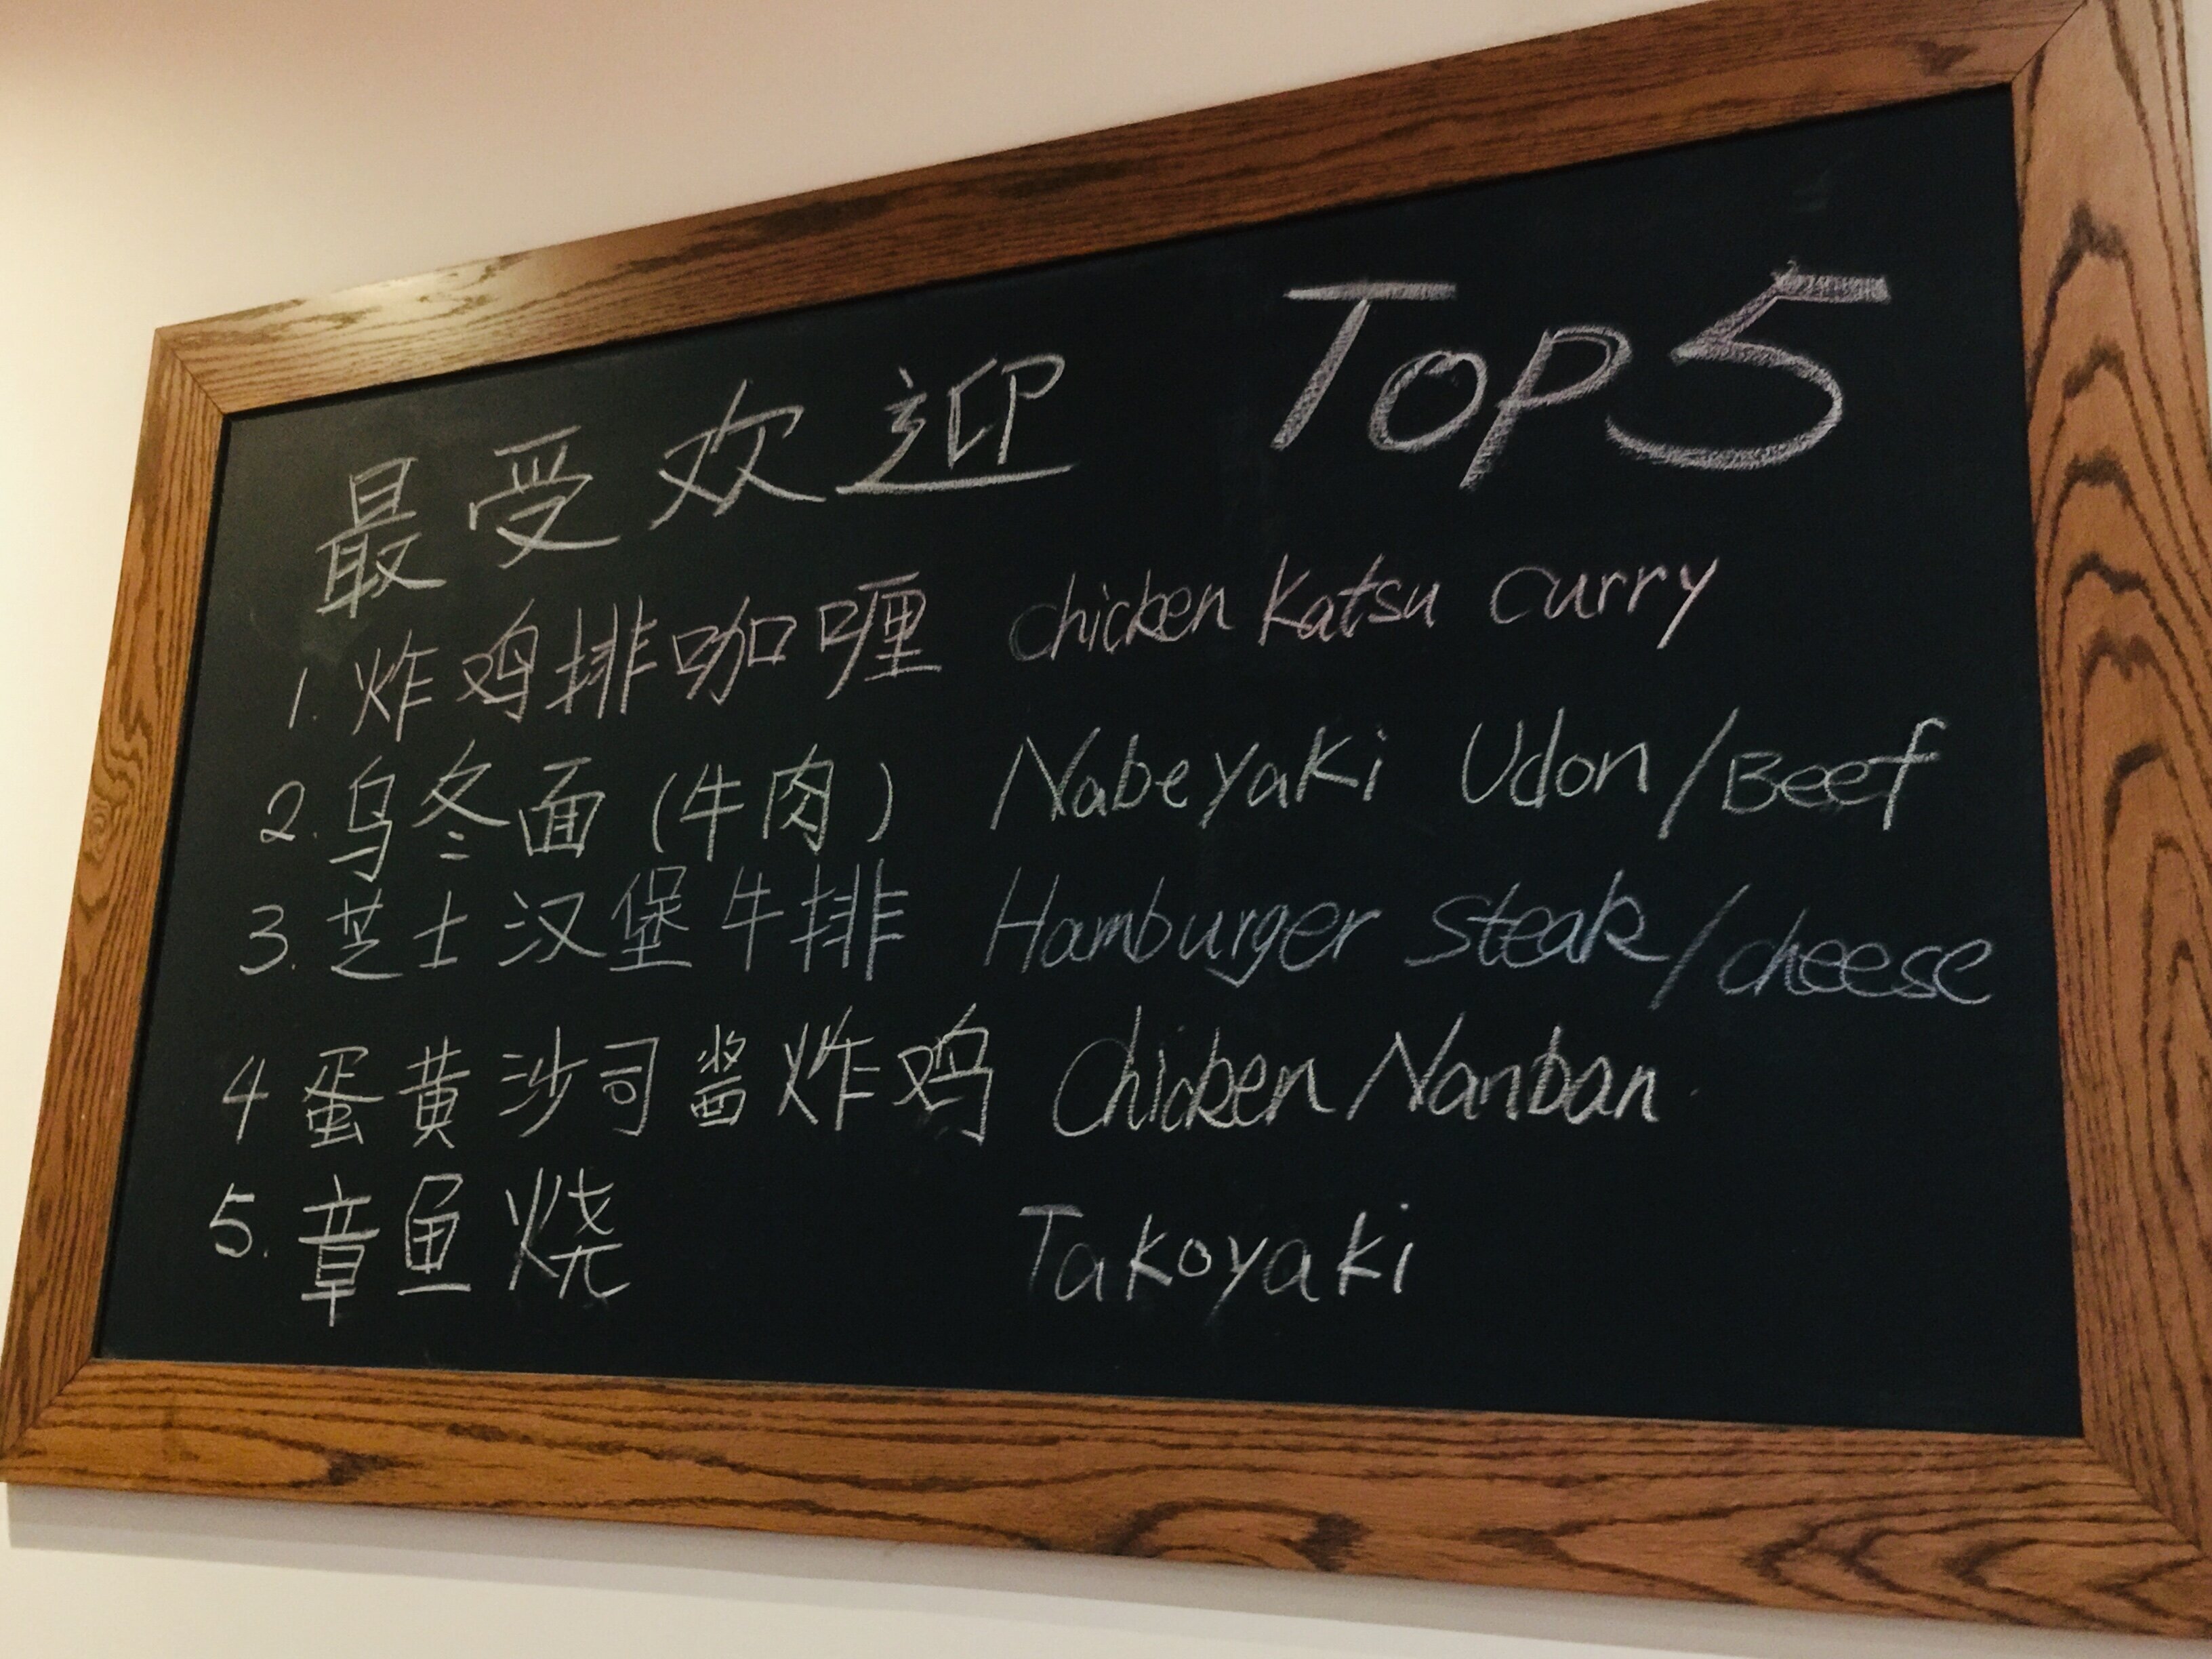 最受欢迎 Top5
1. 炸鸡排咖喱 chicken Katsu curry
2. 乌冬面 (牛肉) Nabeyaki Udon/Beef
3. 芝士汉堡牛排 Hamburger Steak/cheese
4 蛋黄沙司酱炸鸡 Chicken Nanban
5. 章鱼烧 Takoyaki